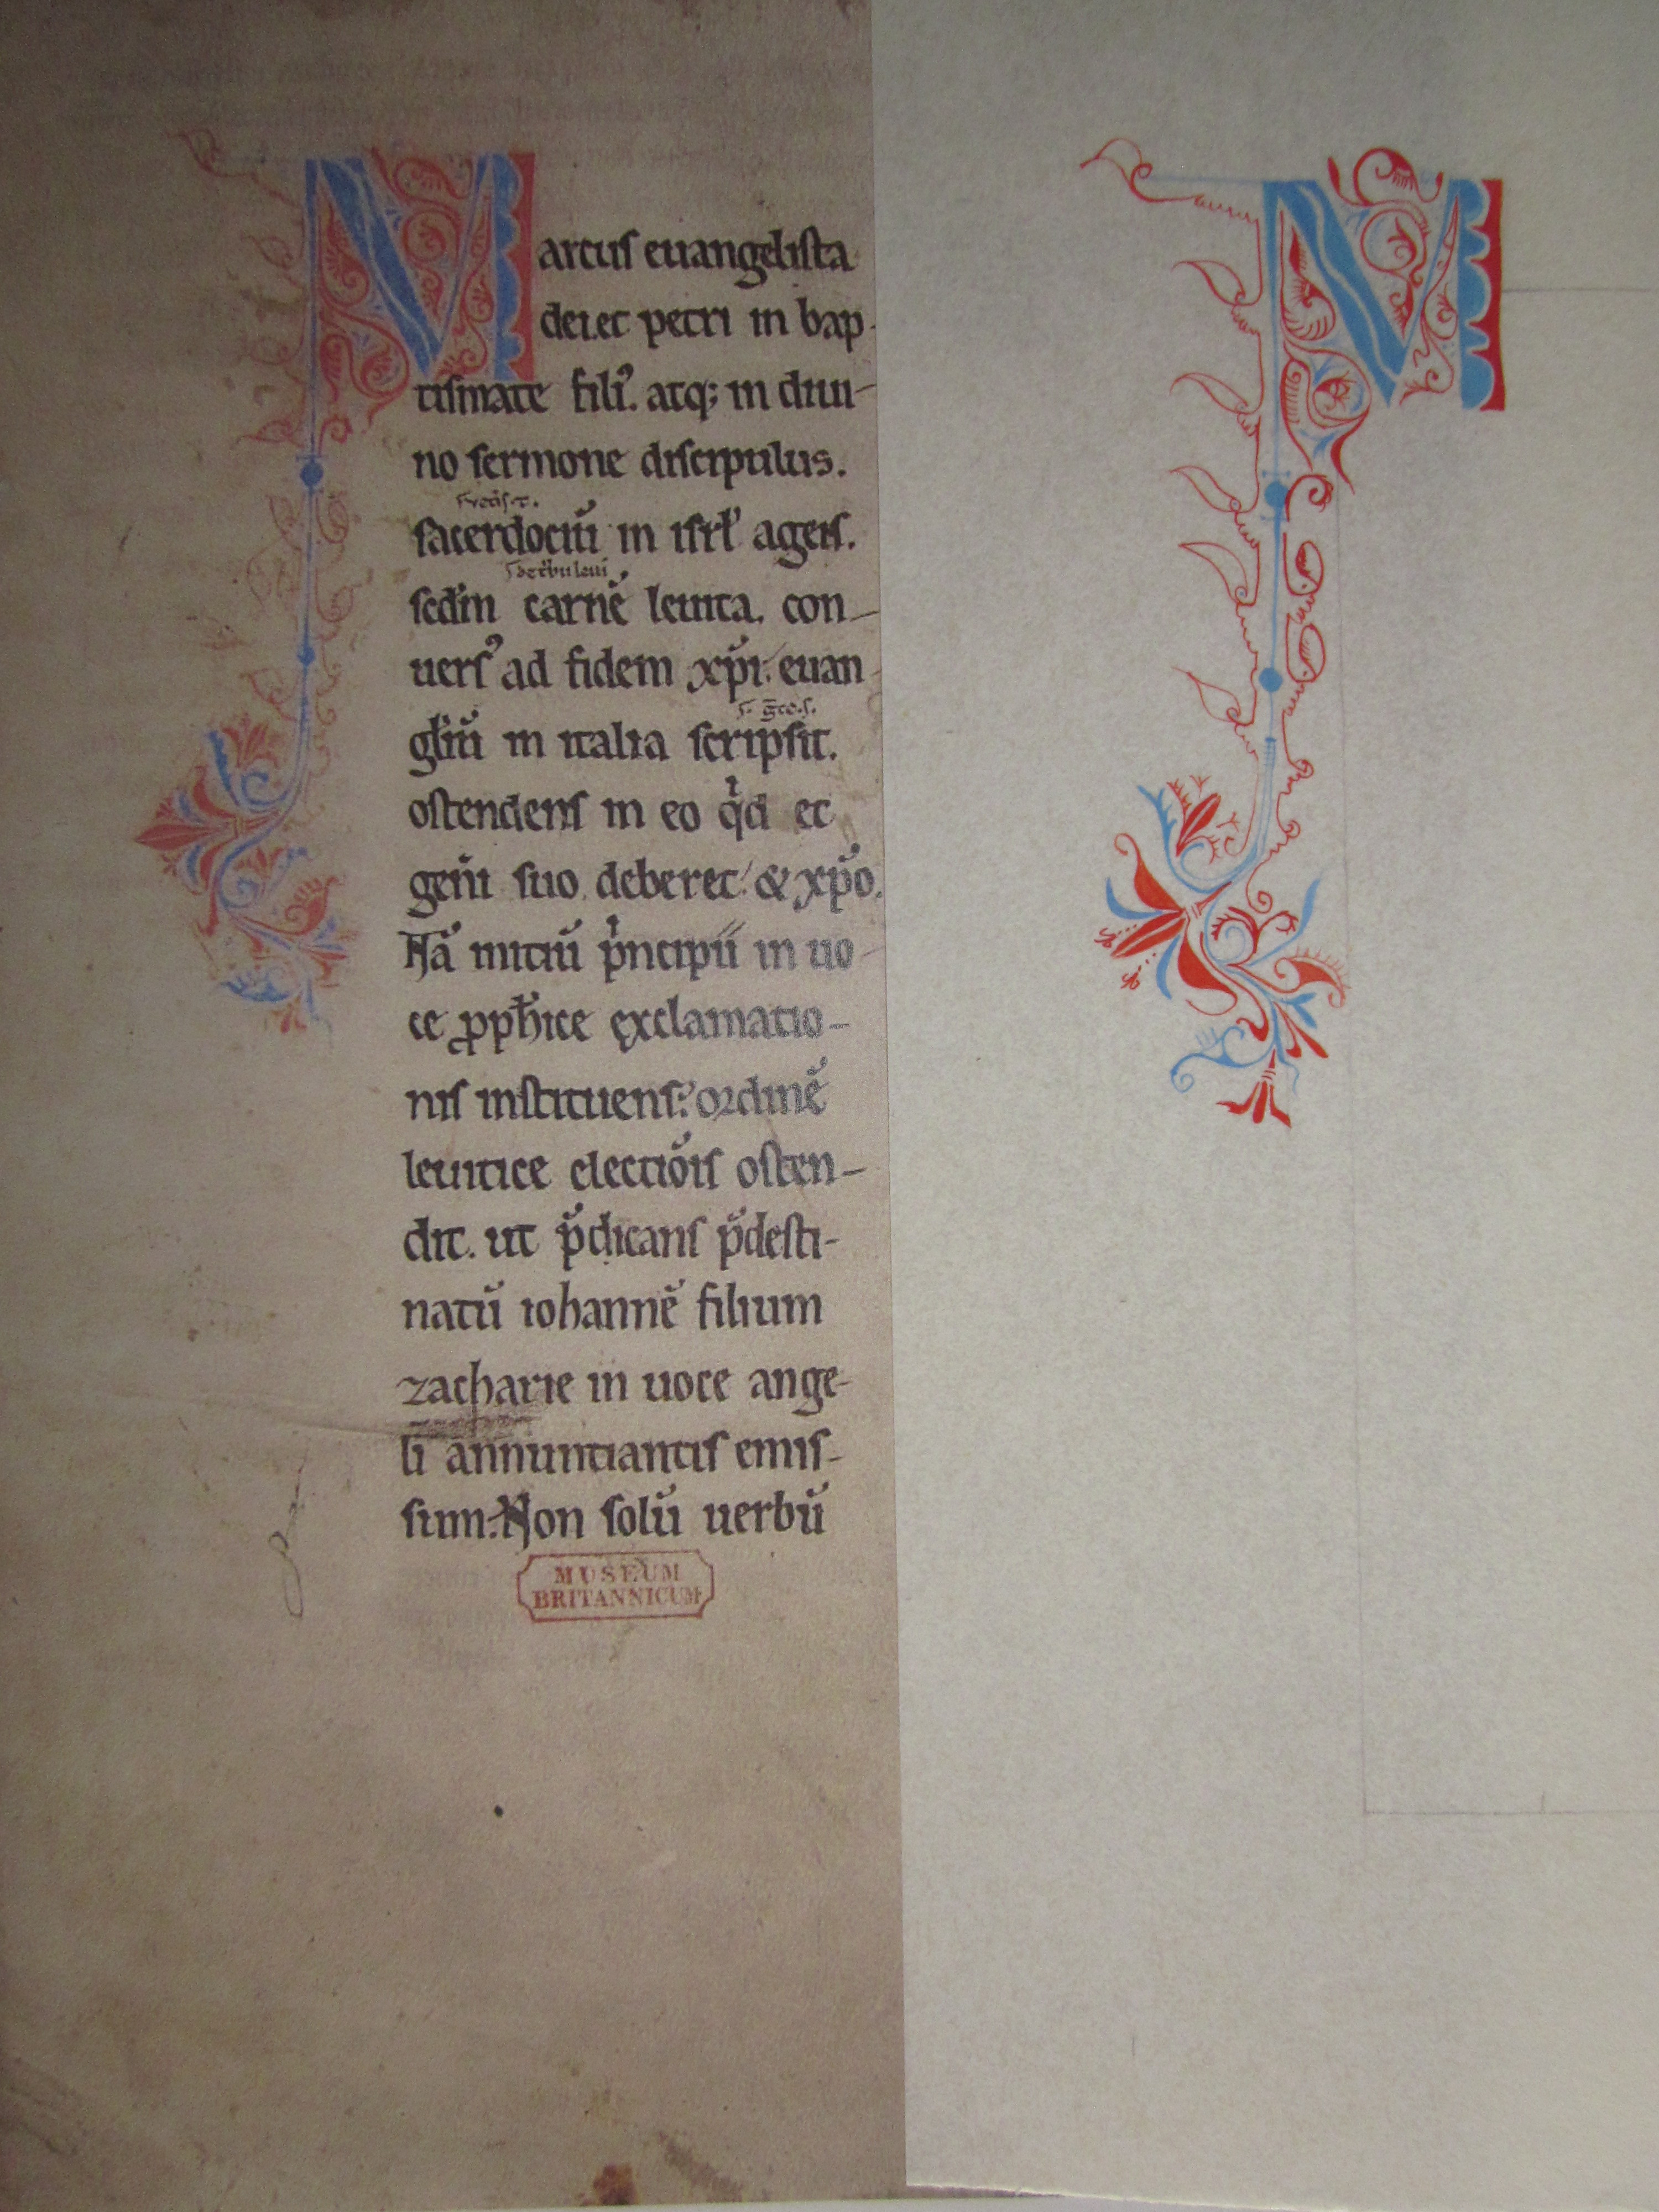 Marcus euangelista
dei. et petri in bap-
tismate fili⁹. atq; in diui-
no sermone discipulus.
sacerdociū in isrł agens.
sedm̄ carnē leuita. con-
uers⁹ ad fidem xp̄i. euan-
gliū in italia scripsit.
ostendens in eo qd et
geñi suo deberet. & xp̄o.
Nā initiū pͥncipii in uo-
ce ꝓph̄ice exclamatio-
nis instituens. ordinē
leuitice electiōis osten-
dit. ut p̄dicans p̄desti-
natū iohannē filium
zacharie in uoce ange-
li annuntiantis emis-
sum. Non solū uerbū
MUSEUM
BRITANNICUM
M